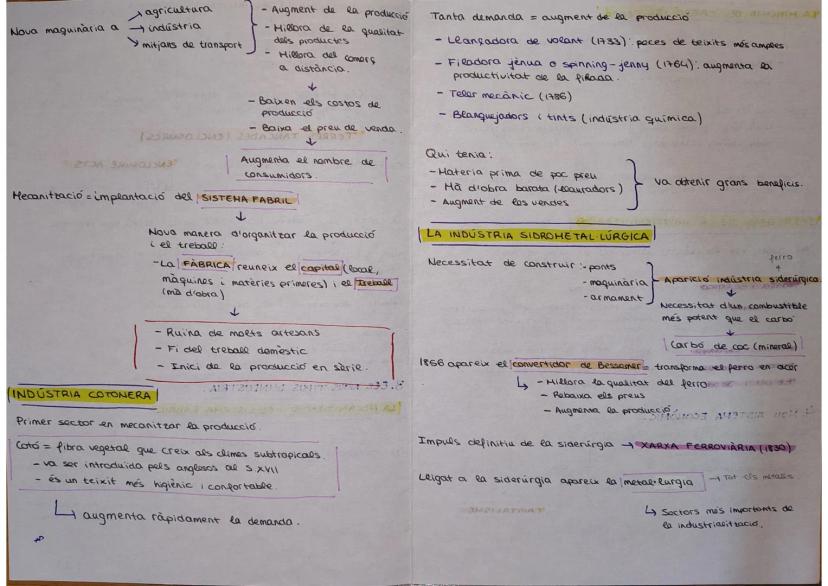 Nova maquinària a
→ agricultura
→ indústria
→ mitjans de transport
- Augment de la producció
- Millora de la qualitat
dels productes
- Millora del comerç
a distància.
↓
- Baixen els costos de
producció
- Baixa el preu de venda.
↓
Augmenta el nombre de
consumidors.
Mecanització = implantació del SISTEMA FABRIL
↓
Nova manera d'organitzar la producció
i el treball:
- La FÀBRICA reuneix el capital (local,
màquines i matèries primeres) i el treball
(mà d'obra)
↓
- Ruïna de molts artesans
- Fi del treball domèstic
- Inici de la producció en sèrie.
INDÚSTRIA COTONERA
Primer sector en mecanitzar la producció.
Cotó = fibra vegetal que creix als climes subtropicals.
- va ser introduïda pels anglesos al s. XVII
- és un teixit més higiènic i confortable.
↳ augmenta ràpidament la demanda.
Tanta demanda = augment de la producció
- Llançadora de volant (1733): peces de teixits més amples.
- Filadora jenua o spinning-jenny (1764): augmenta la
productivitat de la filada.
- Teler mecànic (1786)
- Blanquejadors i tints (indústria química)
Qui tenia:
- Materia prima de poc preu
- Mà d'obra barata (llauradors)
- Augment de les vendes
va obtenir grans beneficis.
LA INDÚSTRIA SIDROMETAL·LÚRGICA
Necessitat de construir:
- ponts
- maquinària
- armament
ferro
↑
Aparició indústria siderúrgica
↓
Necessitat d'un combustible
més potent que el carbó
↓
Carbó de coc (mineral)
1856 apareix el convertidor de Bessemer = transforma el ferro en acer
↳ - Millora la qualitat del ferro
- Rebaixa els preus
- Augmenta la producció
Impuls definitiu de la siderúrgia → XARXA FERROVIÀRIA (1830)
Lligat a la siderúrgia apareix la metal·lurgia → Tot els metalls
↳ Sectors més importants de
la industrialització.